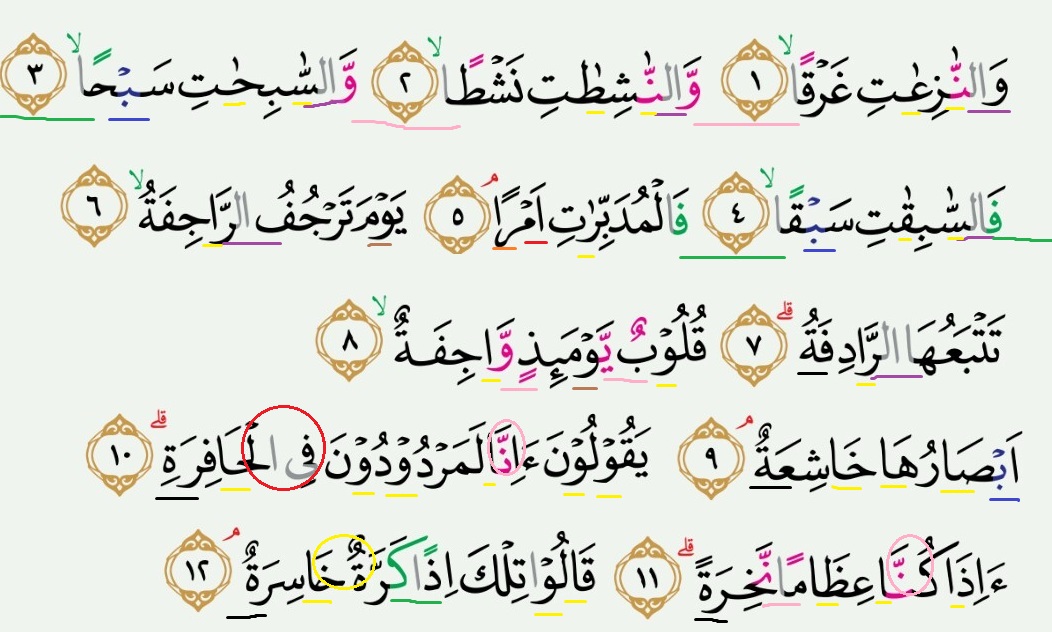 وَالنّٰزِعٰتِ غَرْقًا ۙ ١ وَّالنّٰشِطٰتِ نَشْطًا ۙ ٢ وَّالسّٰبِحٰتِ سَبْحًا ۙ ٣
فَالسّٰبِقٰتِ سَبْقًا ۙ ٤ فَالْمُدَبِّرٰتِ اَمْرًا ۘ ٥ يَوْمَ تَرْجُفُ الرَّاجِفَةُ ۙ ٦
تَتْبَعُهَا الرَّادِفَةُ ۗ ٧ قُلُوْبٌ يَّوْمَىِٕذٍ وَّاجِفَةٌ ۙ ٨
اَبْصَارُهَا خَاشِعَةٌ ۘ ٩ يَقُوْلُوْنَ ءَاِنَّا لَمَرْدُوْدُوْنَ فِى الْحَافِرَةِ ۗ ١٠
ءَاِذَا كُنَّا عِظَامًا نَّخِرَةً ۗ ١١ قَالُوْا تِلْكَ اِذًا كَرَّةٌ خَاسِرَةٌ ۘ ١٢